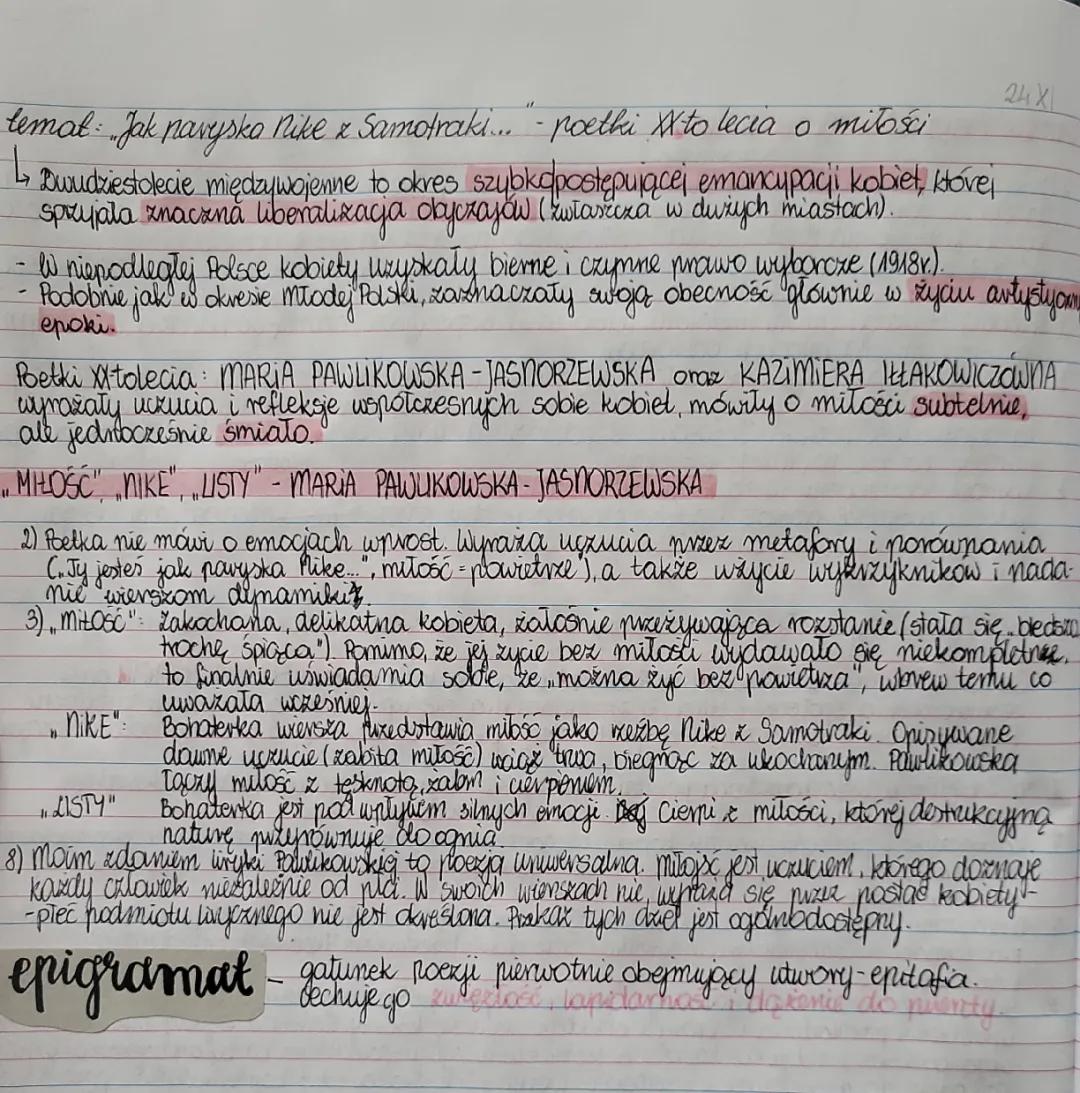 24 XI
temat: „Jak paryska Nike z Samotraki..." - poetki XX-to lecia o miłości
↳ Dwudziestolecie międzywojenne to okres szybko postępującej emancypacji kobiet, której
sprzyjała znaczna liberalizacja obyczajów (zwłaszcza w dużych miastach).
- W niepodległej Polsce kobiety uzyskały bierne i czynne prawo wyborcze (1918r.).
- Podobnie jak w okresie Młodej Polski, zaznaczały swoją obecność głównie w życiu artystyczn
epoki.
Poetki XX-tolecia: MARIA PAWLIKOWSKA-JASNORZEWSKA oraz KAZIMIERA IŁŁAKOWICZÓWNA
wyrażały uczucia i refleksje współczesnych sobie kobiet, mówiły o miłości subtelnie,
ale jednocześnie śmiało.
„MIŁOŚĆ", „NIKE", „LISTY" - MARIA PAWLIKOWSKA-JASNORZEWSKA
2) Poetka nie mówi o emocjach wprost. Wyraża uczucia przez metafory i porównania
(„Ty jesteś jak paryska Nike...", miłość = powietrze"), a także użycie wykrzykników i nada-
nie wierszom dynamiki.
3) „MIŁOŚĆ": Zakochana, delikatna kobieta, żałośnie przeżywająca rozstanie (stała się „bledsza
trochę śpiąca"). Pomimo, że jej życie bez miłości wydawało się niekompletne,
to finalnie uświadamia sobie, że „można żyć bez powietrza", wbrew temu co
uważała wcześniej.
„NIKE": Bohaterka wiersza przedstawia miłość jako rzeźbę Nike z Samotraki. Opisywane
dawne uczucie (zabita miłość) wciąż trwa, biegnąc za ukochanym. Pawlikowska
łączy miłość z tęsknotą, żalem i cierpieniem.
„LISTY" Bohaterka jest pod wpływem silnych emocji. Cierpi z miłości, której destrukcyjną
naturę przyrównuje do ognia
8) Moim zdaniem liryki Pawlikowskiej to poezja uniwersalna. Miłość jest uczuciem, którego doznaje
każdy człowiek niezależnie od płci. W swoich wierszach nie wyraża się przez postać kobiety-
-płeć podmiotu lirycznego nie jest określona. Przekaz tych dzieł jest ogólnodostępny.
epigramat - gatunek poezji pierwotnie obejmujący utwory-epitafia.
Cechuje go zwięzłość, lapidarność i dążenie do puenty.